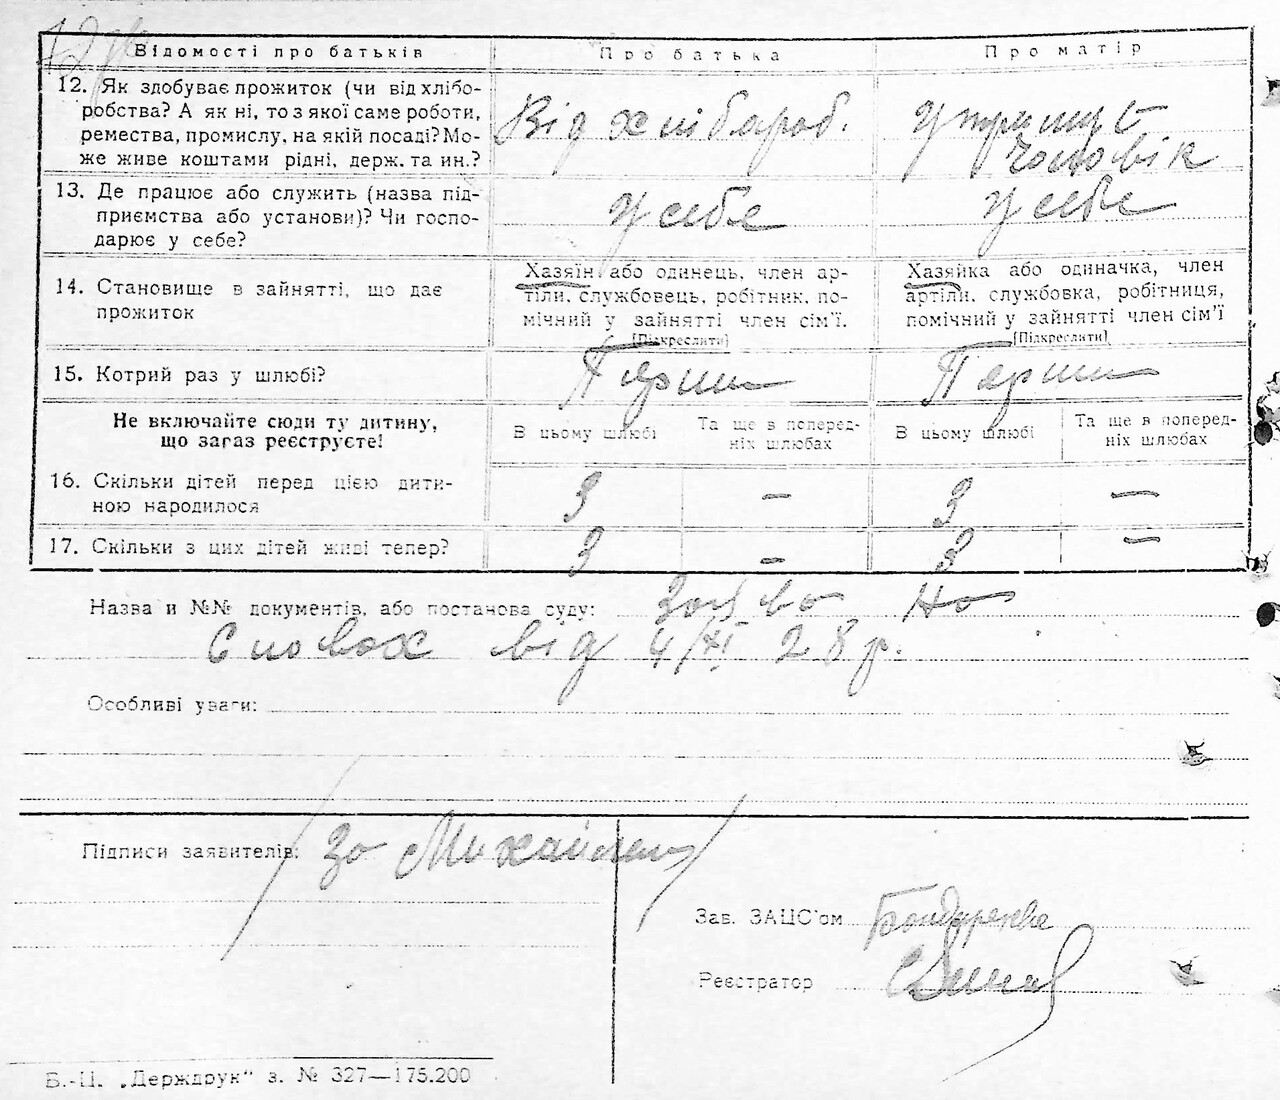 Відомості про батьків Про батька Про матір
12. Як здобуває прожиток (чи від хлібо-
робства? А як ні, то з якої саме роботи,
ремества, промислу, на якій посаді? Мо-
же живе коштами рідні, держ. та ин.?
Від хлібароб.
утриму є
чоловік
13. Де працює або служить (назва під-
приємства або установи)? Чи госпо-
дарює у себе?
у себе
у себе
14. Становище в зайнятті, що дає
прожиток
Хазяїн або одинець, член ар-
тіли, службовець, робітник, по-
мічний у зайнятті член сім'ї.
[Підкреслити]
Хазяйка або одиначка, член
артіли, службовка, робітниця,
помічний у зайнятті член сім'ї
[Підкреслити]
15. Котрий раз у шлюбі?
Перши
Перши
Не включайте сюди ту дитину,
що загаз реєструєте!
В цьому шлюбі
Та ще в поперед-
ніх шлюбах
В цьому шлюбі
Та ще в поперед-
ніх шлюбах
16. Скільки дітей перед цією дити-
ною народилося
3 — 3 —
17. Скільки з цих дітей живі тепер?
3 — 3 —
Назва и №№ документів, або постанова суду: Заява на
словах від 4/XI 28 р.
Особливі уваги:
Підписи заявителів: За
Зав. ЗАЦС'ом Бондаренко
Реєстратор
Б.-Ц. „Держдрук" з. № 327—175.200